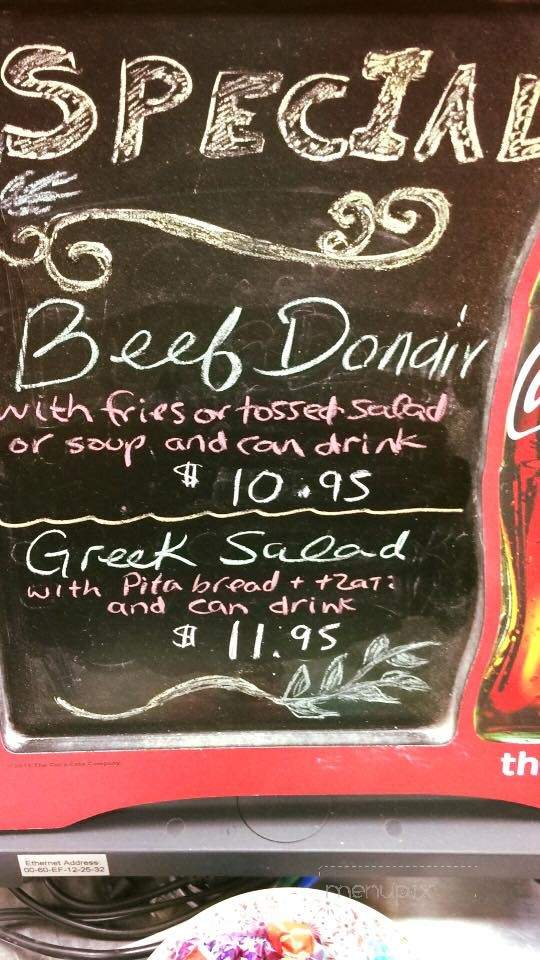 SPECIAL
Beef Donair
with fries or tossed salad
or soup, and can drink
$ 10.95
Greek Salad
with Pita bread + tzati
and can drink
$ 11.95
th
Ethernet Address:
00-60-EF-12-25-32
menupix